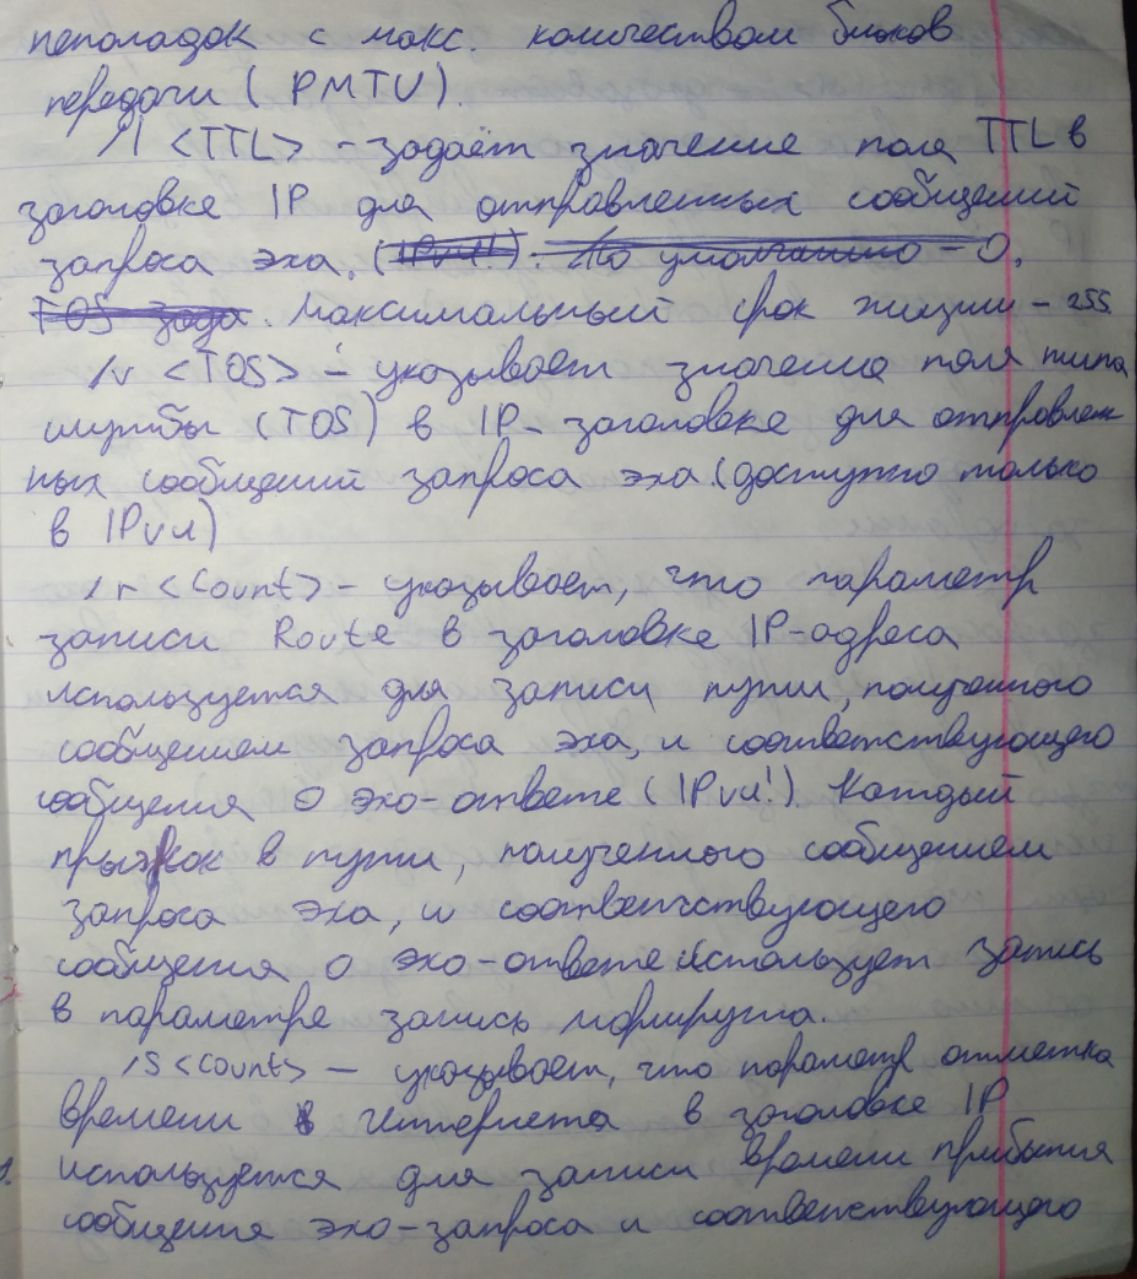 неполадок с макс. количеством блоков
передачи (PMTU).
/I <TTL> - задаёт значение поля TTL в
заголовке IP для отправленных сообщений
запроса эха. (IPv4!). По умолчанию - 0.
TOS зада. Максимальный срок жизни - 255.
/v <TOS> - указывает значение поля типа
службы (TOS) в IP-заголовке для отправлен
ных сообщений запроса эха. (доступно только
в IPv4)
/r <Count> - указывает, что параметр
записи Route в заголовке IP-адреса
используется для записи пути, полученного
сообщением запроса эха, и соответствующего
сообщения о эхо-ответе (IPv4!) Каждый
прыжок в пути, полученного сообщением
запроса эха, и соответствующего
сообщения о эхо-ответе использует запись
в параметре запись маршрута.
/S <count> - указывает, что параметр отметка
времени Интернета в заголовке IP
используется для записи времени прибытия
сообщения эхо-запроса и соответствующего